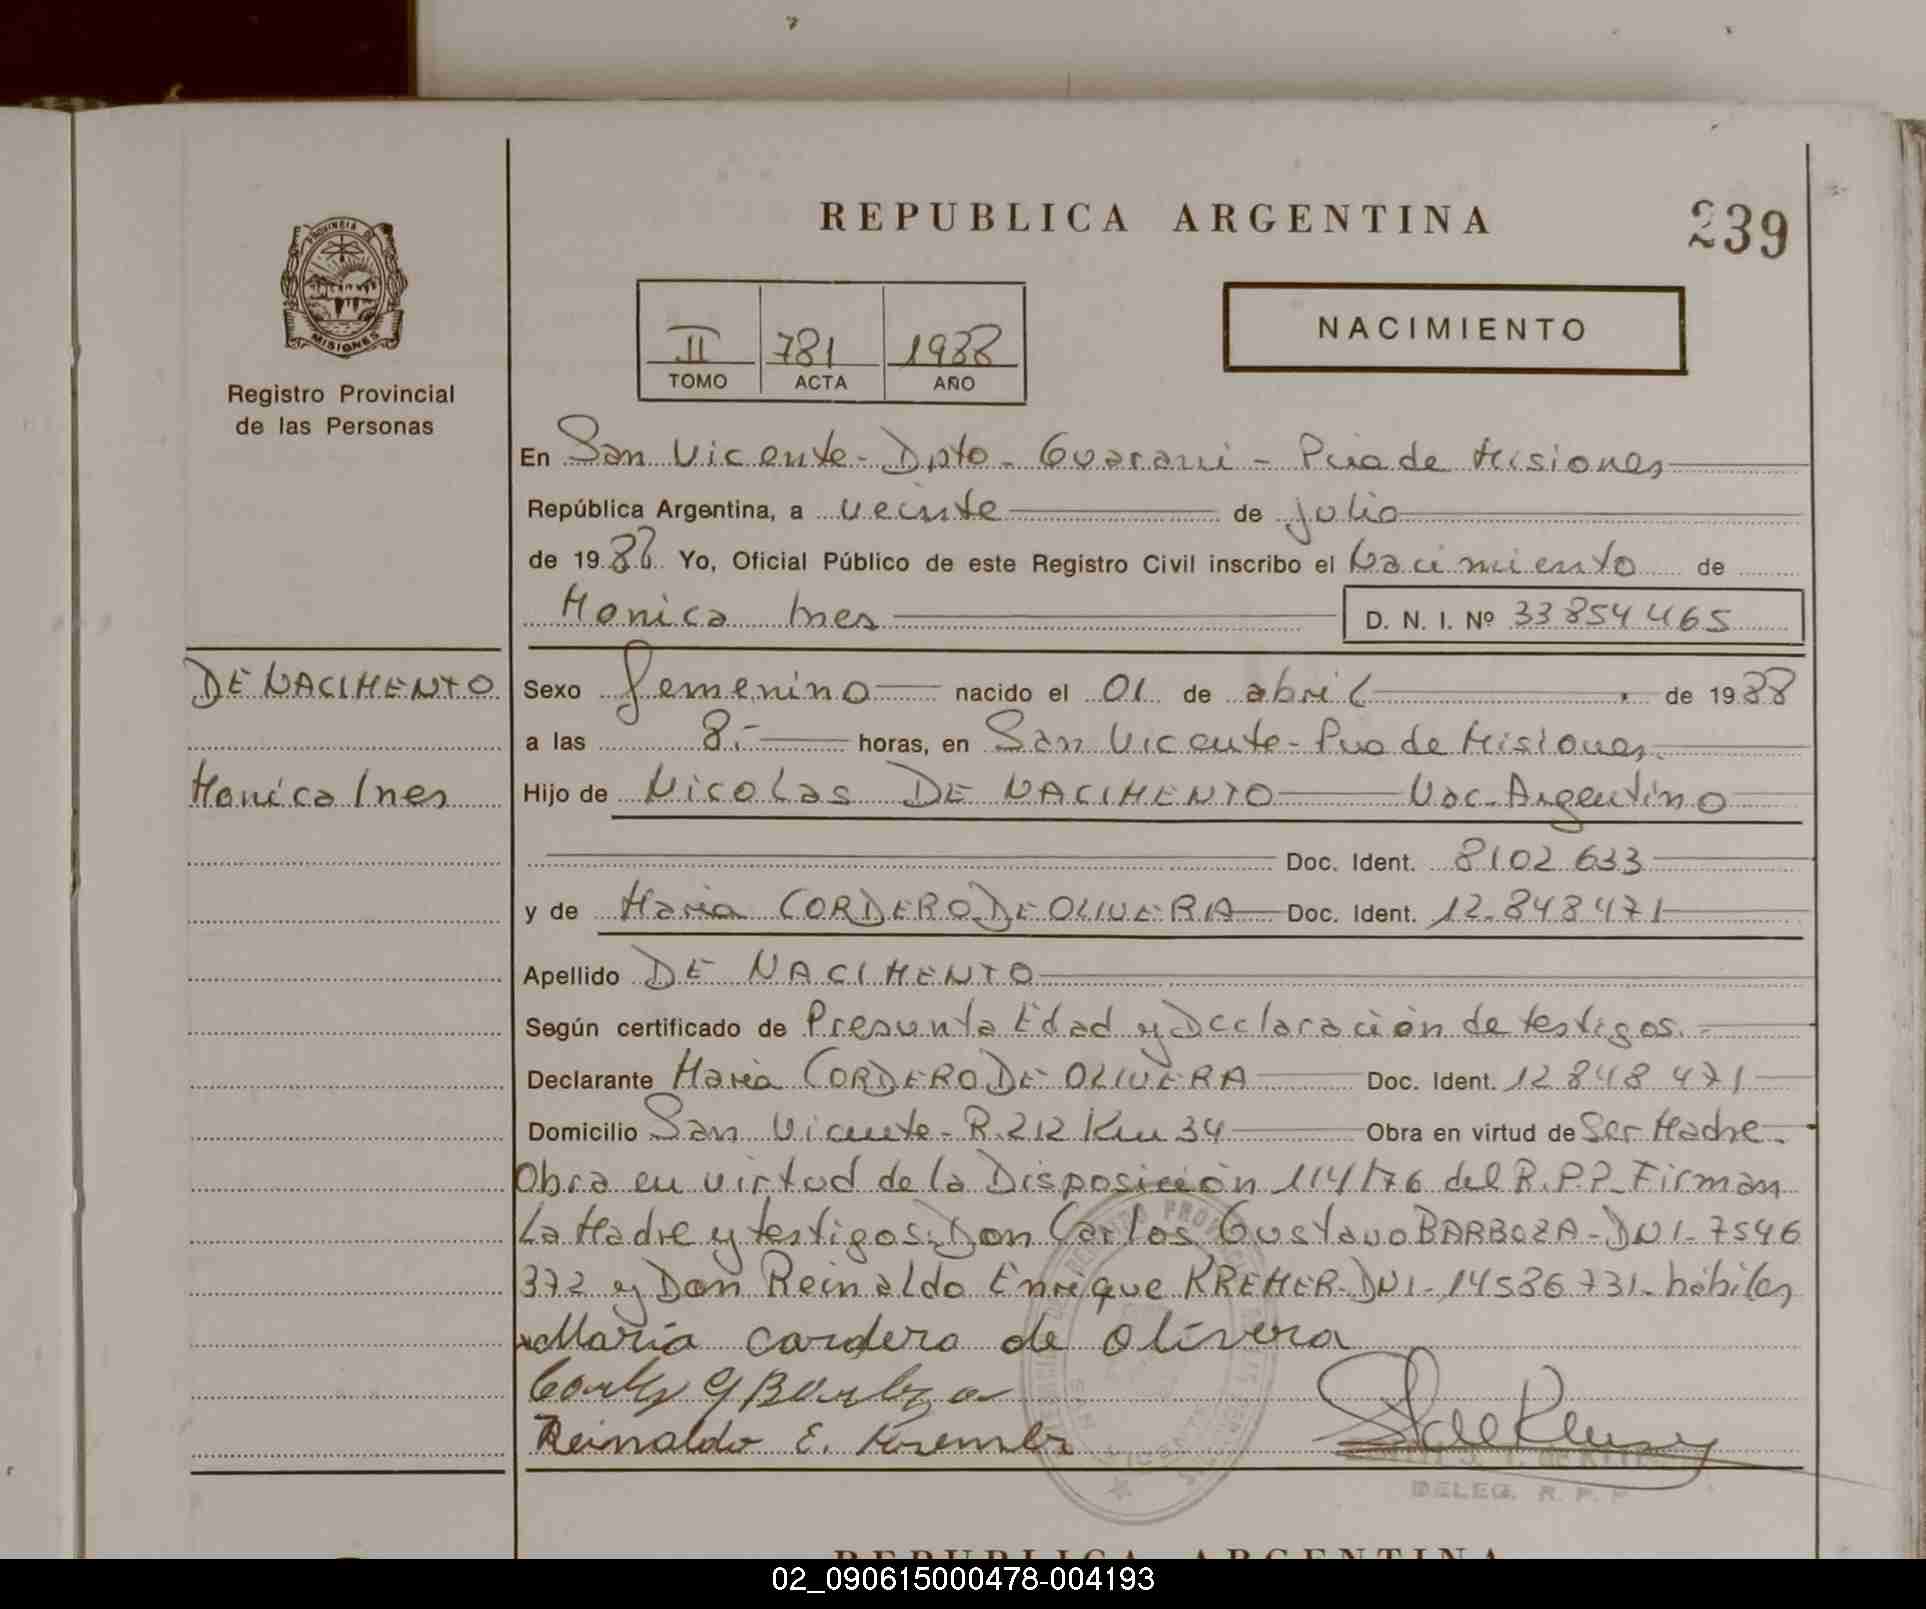 REPUBLICA ARGENTINA
239
PROVINCIA DE
MISIONES
Registro Provincial
de las Personas
II 781 1988
TOMO ACTA AÑO
NACIMIENTO
En San Vicente - Dpto - Guarani - Pcia de Misiones
República Argentina, a veinte de julio
de 1988 Yo, Oficial Público de este Registro Civil inscribo el Nacimiento de
Monica Ines D. N. I. Nº 33854465
DE NACIMENTO
Sexo femenino nacido el 01 de abril de 1988
a las 8.- horas, en San Vicente - Pcia de Misiones.
Monica Ines
Hijo de Nicolas DE NACIMENTO Nac. Argentino
Doc. Ident. 8102 633
y de Maria CORDERO DE OLIVERA Doc. Ident. 12.848471
Apellido DE NACIMENTO
Según certificado de Presunta Edad y Declaración de testigos.-
Declarante Maria CORDERO DE OLIVERA Doc. Ident. 12848471
Domicilio San Vicente - R.212 Km 34 Obra en virtud de Ser Madre.
Obra en virtud de la Disposición 114/76 del R.P.P. Firman
La Madre y testigos: Don Carlos Gustavo BARBOZA - DNI - 7546
372 y Don Reinaldo Enrique KREMER - DNI - 14586731 - hábiles
Maria cordero de Olivera
Carlos G Barboza
Reinaldo E. Kremer
DELEG. R. P. P
REPUBLICA ARGENTINA
02_090615000478-004193